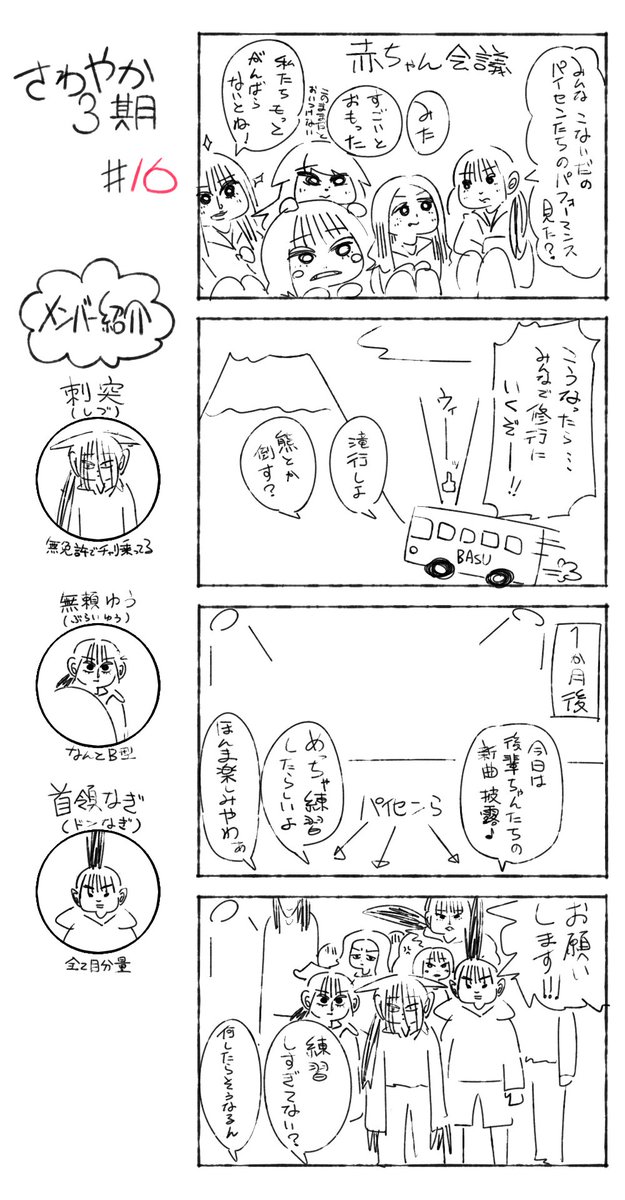 さわやか
3期
#10
メンバー紹介
刺突
(しづ)
無免許でチャリ乗ってる
無頼ゆう
(ぶらいゆう)
なんとB型
首領なぎ
(ドンなぎ)
全て目分量
赤ちゃん会議
みんな こないだの
パイセンたちのパフォーマンス
見た?
みた
すごいと
おもった
このままだと
おいつけない
私たち もっと
がんばら
ないとね!
こうなったら…
みんなで修行に
いくぞー!!
ウィーッ
滝行しよ
熊とか
倒す?
BASU
1か月後
今日は
後輩ちゃんたちの
新曲披露♪
パイセンら
めっちゃ練習
したらしいよ
ほんま楽しみやわぁ
お願い
します!!!
練習
しすぎてない?
何したらそうなるん